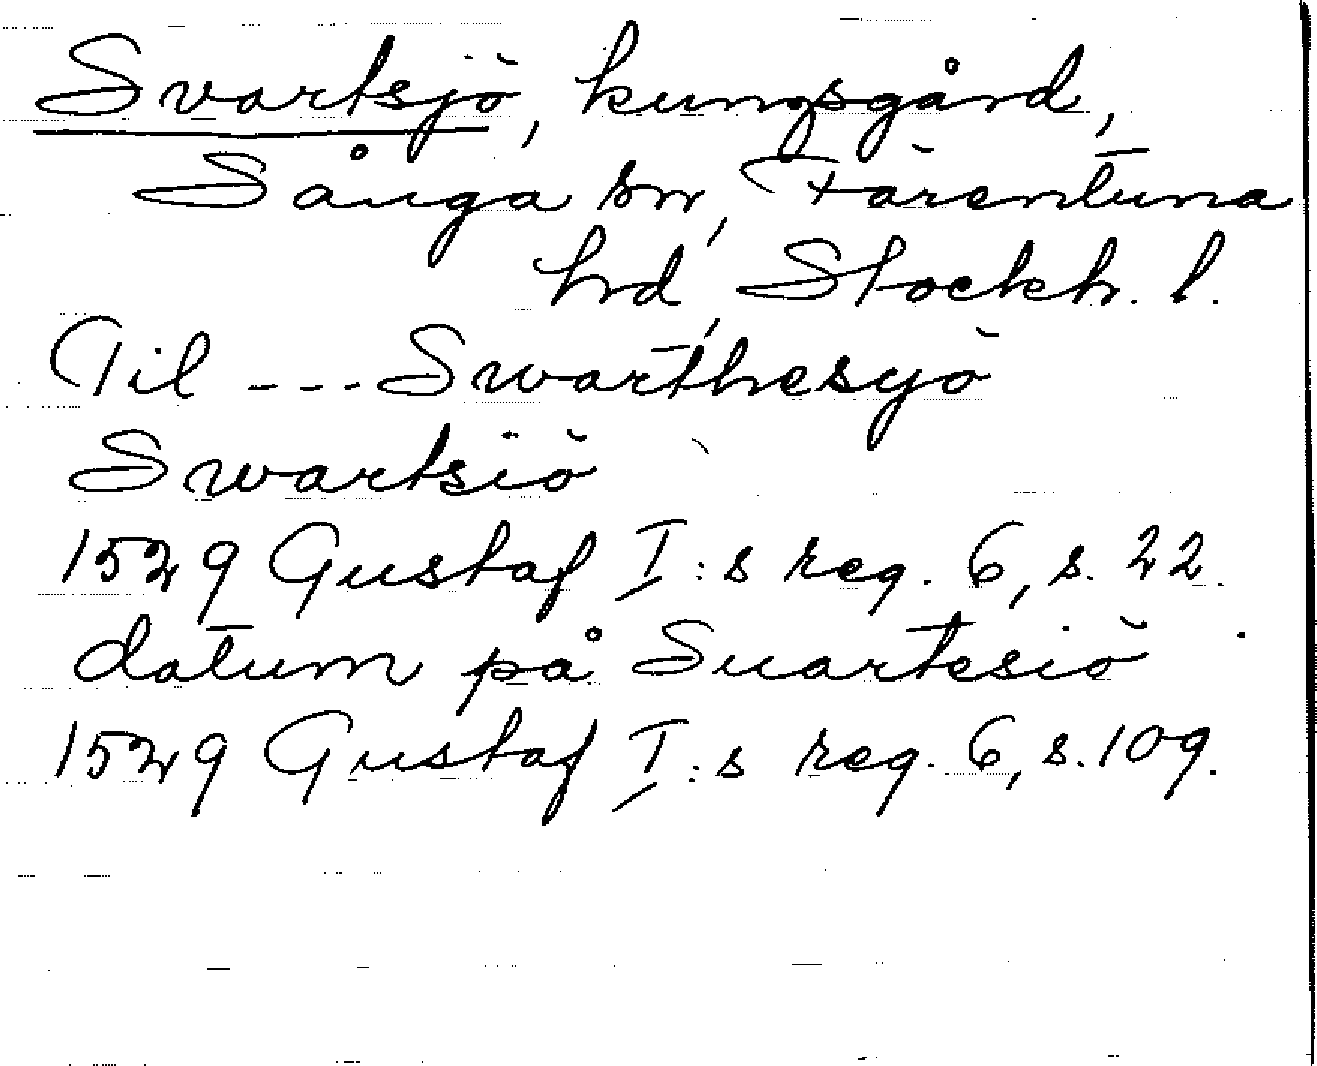 Svartsjö, kungsgård,
Sånga sn, Färentuna
hd, Stockh. l.
Til --- Swarthesyö
Swartsiö
1529 Gustaf I:s reg. 6, s. 22.
datum på Suartesiö
1529 Gustaf I:s reg. 6, s. 109.